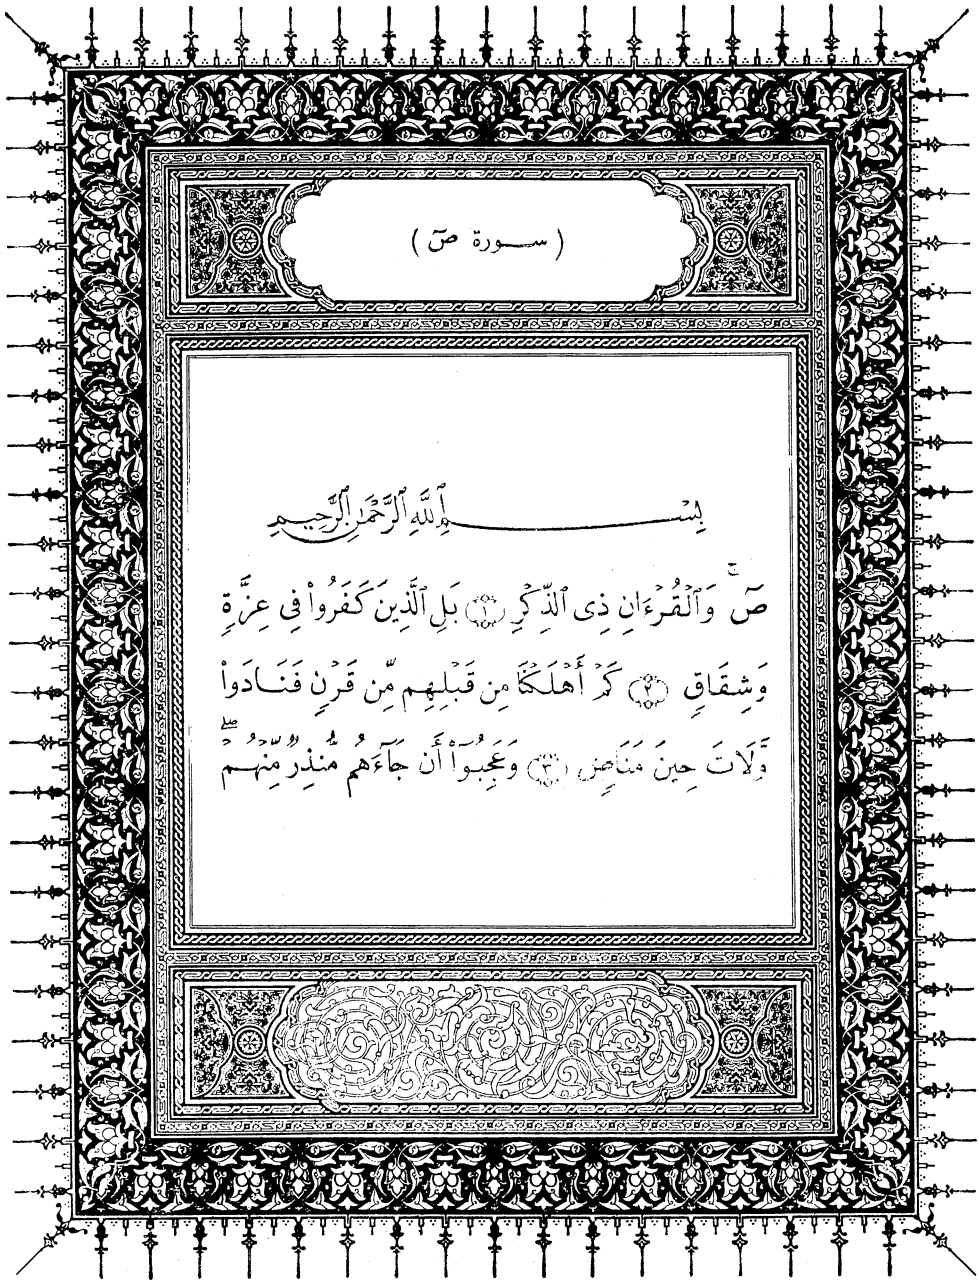 ( سورة صٓ )
بِسْمِ ٱللَّهِ ٱلرَّحْمَٰنِ ٱلرَّحِيمِ
صٓ ۚ وَٱلْقُرْءَانِ ذِى ٱلذِّكْرِ ١ بَلِ ٱلَّذِينَ كَفَرُوا۟ فِى عِزَّةٍ
وَشِقَاقٍ ٢ كَمْ أَهْلَكْنَا مِن قَبْلِهِم مِّن قَرْنٍ فَنَادَوا۟
وَّلَاتَ حِينَ مَنَاصٍ ٣ وَعَجِبُوٓا۟ أَن جَآءَهُم مُّنذِرٌ مِّنْهُمْ ۖ